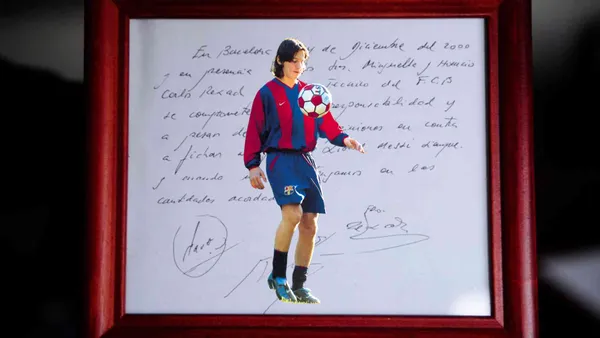 En Barcelon y de Diciembre del 2000
y en presencia Sres. Minguella y Horacio
Carlos Rexach Técnico del F.C.B
se compromete responsabilidad y
a pesar de iniones en contra
a fichar Lionel Messi siempre
y cuando en las
cantidades acordadas